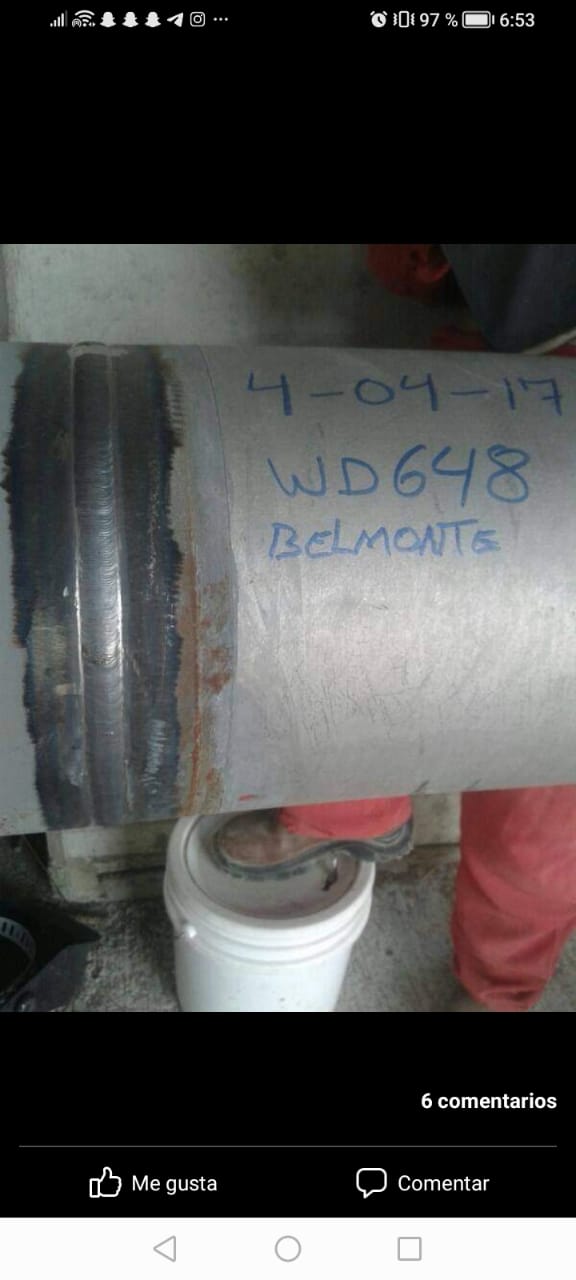 97 % 6:53
4-04-17
WD648
BELMONTE
6 comentarios
Me gusta
Comentar